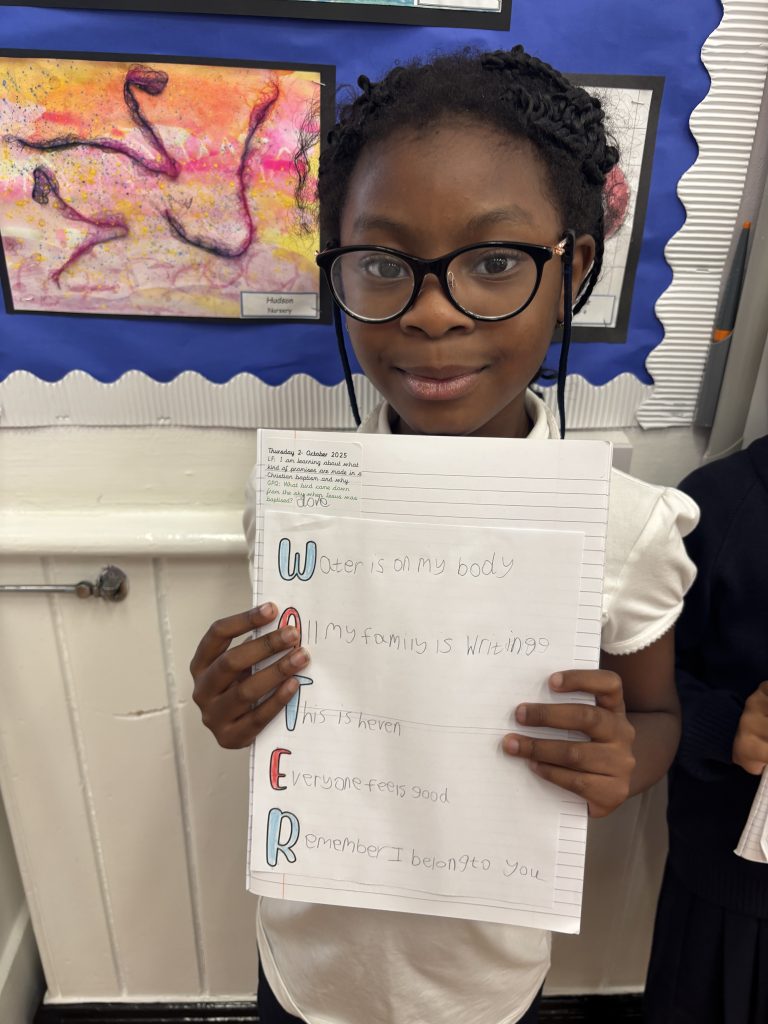 Hudson
Nursery
Thursday 2. October 2025
LF: I am learning about what
kind of promises are made in a
Christian baptism and why.
GPQ: What bird came down
from the sky when Jesus was
baptised? dove
Water is on my body
All my family is writingg
This is heven
Everyone feels good
Remember I belong to you